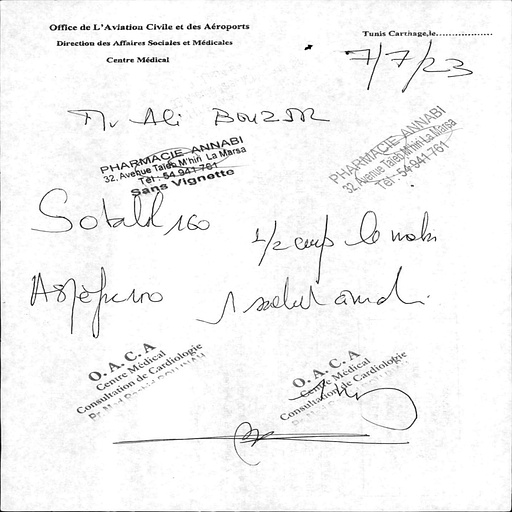 Office de L'Aviation Civile et des Aéroports
Direction des Affaires Sociales et Médicales
Centre Médical
Tunis Carthage,le..................
7/7/23
Mr Ali
PHARMACIE ANNABI
32, Avenue Taieb M'hiri La Marsa
Tél : 54 941 761
Sans Vignette
PHARMACIE ANNABI
32, Avenue Taieb M'hiri La Marsa
Tél : 54 941 761
Sotalol 160 1/2 comp le matin
1 sachet
O. A. C. A
Centre Médical
Consultation de Cardiologie
O. A. C. A
Centre Médical
Consultation de Cardiologie